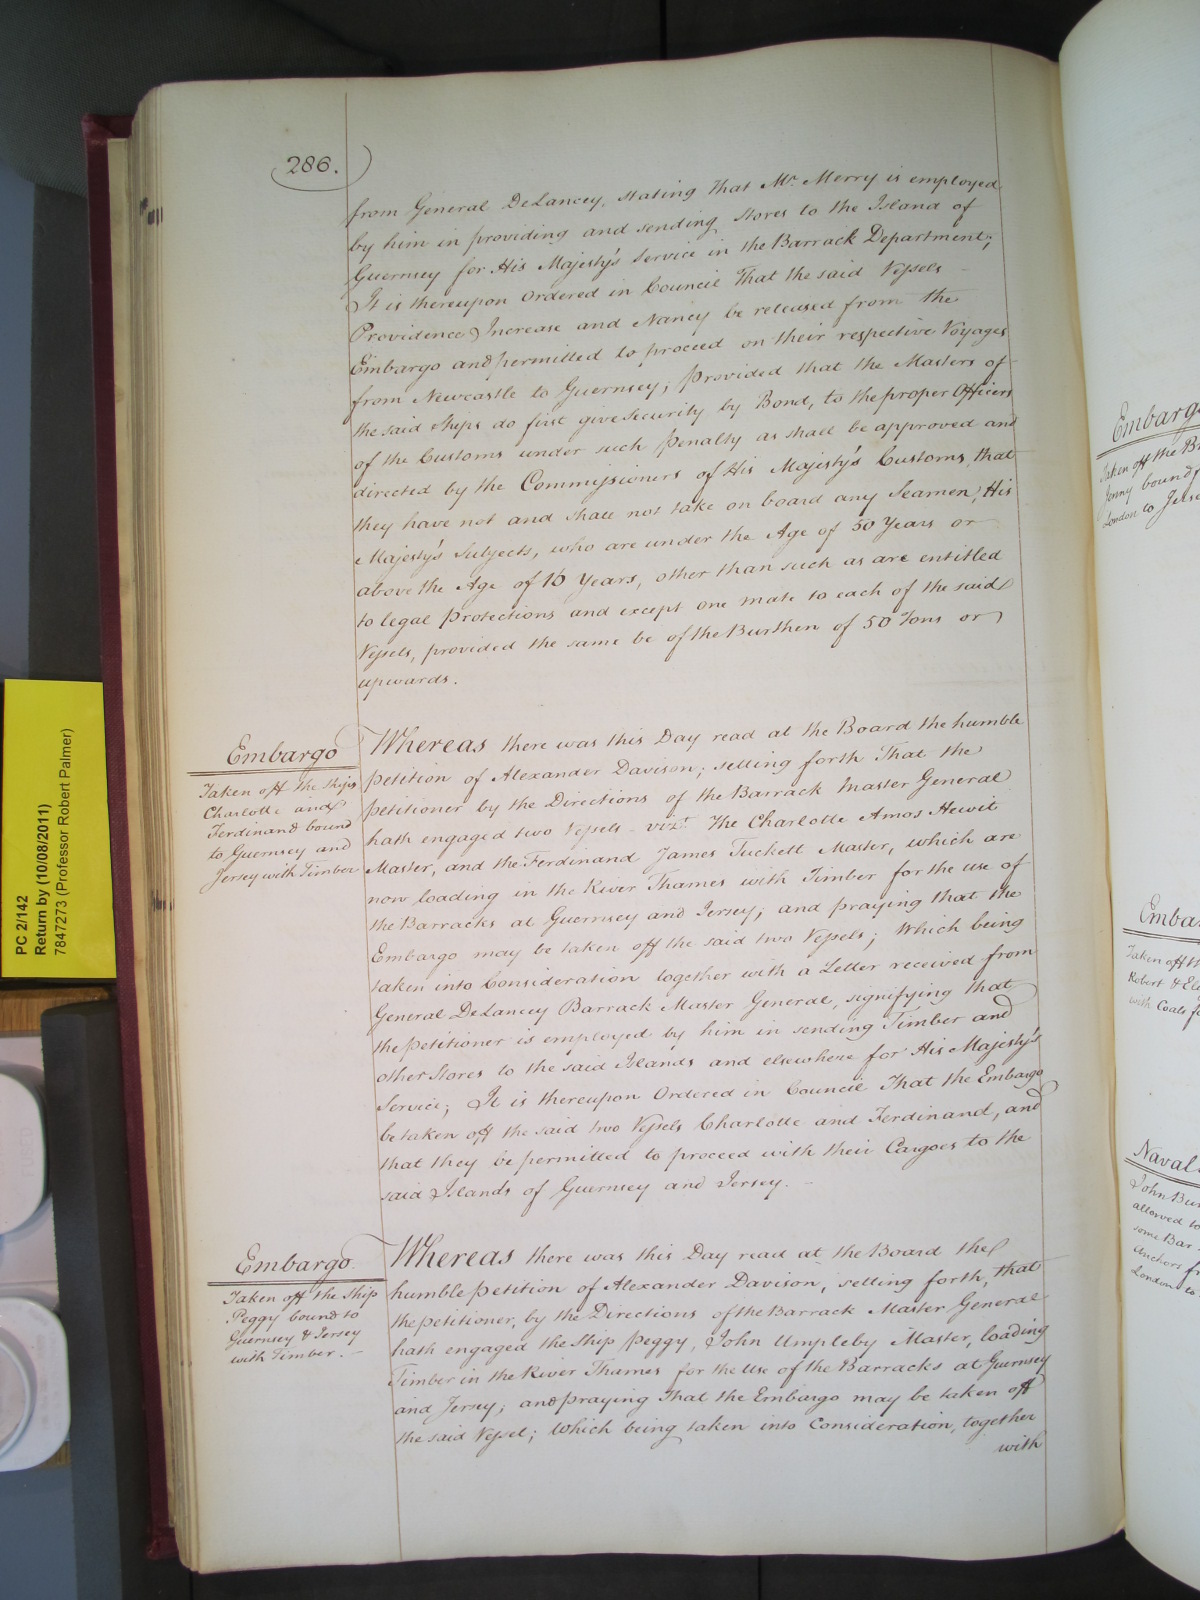 286.
from General DeLancey, stating that Mr. Merry is employed
by him in providing and sending Stores to the Island of
Guernsey for His Majesty's Service in the Barrack Department;
It is thereupon Ordered in Council That the said Vessels
Providence, Increase and Nancy be released from the
Embargo and permitted to proceed on their respective Voyages
from Newcastle to Guernsey; provided that the Masters of
the said Ships do first give Security by Bond, to the proper Officers
of the Customs under such Penalty as shall be approved and
directed by the Commissioners of His Majesty's Customs, that
they have not and shall not take on board any Seamen, His
Majesty's Subjects, who are under the Age of 50 Years or
above the Age of 16 Years, other than such as are entitled
to legal Protections and except one mate to each of the said
Vessels, provided the same be of the Burthen of 50 Tons or
upwards.
Embargo
Taken off the Ships
Charlotte and
Ferdinand bound
to Guernsey and
Jersey with Timber
Whereas there was this Day read at the Board the humble
petition of Alexander Davison; setting forth That the
petitioner by the Directions of the Barrack Master General
hath engaged two Vessels vizt. The Charlotte Amos Hewit
Master, and the Ferdinand James Tuckett Master, which are
now loading in the River Thames with Timber for the use of
the Barracks at Guernsey and Jersey; and praying that the
Embargo may be taken off the said two Vessels; Which being
taken into Consideration together with a Letter received from
General DeLancey Barrack Master General, signifying that
the petitioner is employed by him in sending Timber and
other Stores to the said Islands and elsewhere for His Majesty's
Service; It is thereupon Ordered in Council That the Embargo
be taken off the said two Vessels Charlotte and Ferdinand, and
that they be permitted to proceed with their Cargoes to the
said Islands of Guernsey and Jersey.
Embargo
Taken off the Ship
Peggy bound to
Guernsey & Jersey
with Timber.
Whereas there was this Day read at the Board the
humble petition of Alexander Davison, setting forth, that
the petitioner, by the Directions of the Barrack Master General
hath engaged the Ship Peggy, John Umpleby Master, loading
Timber in the River Thames for the Use of the Barracks at Guernsey
and Jersey; and praying That the Embargo may be taken off
the said Vessel; Which being taken into Consideration, together
with
PC 2/142
Return by (10/08/2011)
7847273 (Professor Robert Palmer)
Embargo
Taken off the
Jenny bound
London to
Taken off
Robert &
with Coals
Naval
John
allowed to
some Bar
Anchors
London to